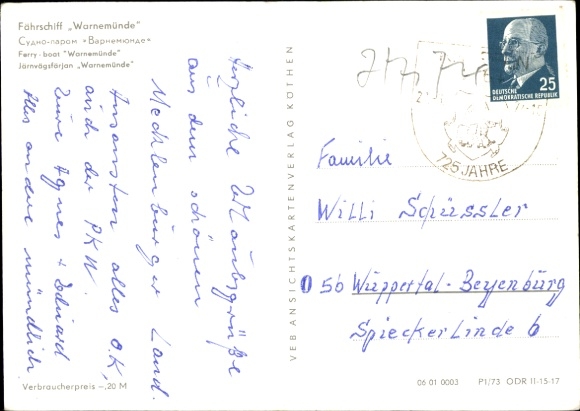 Fährschiff „Warnemünde"
Судно-паром »Варнемюнде»
Ferry-boat "Warnemünde"
Järnvägsfärjan „Warnemünde"
Herzliche Urlaubsgrüße
aus dem schönen
Mecklenburger Land.
Ansonsten alles OK,
auch der PKW.
Eure Agnes + Eduard
Alles andere mündlich
Verbraucherpreis –,20 M
VEB ANSICHTSKARTENVERLAG KÖTHEN
25
DEUTSCHE
DEMOKRATISCHE REPUBLIK
725 JAHRE
Familie
Willi Schüssler
56 Wuppertal-Beyenburg
Spieckerlinde 6
06 01 0003 P1/73 ODR II-15-17